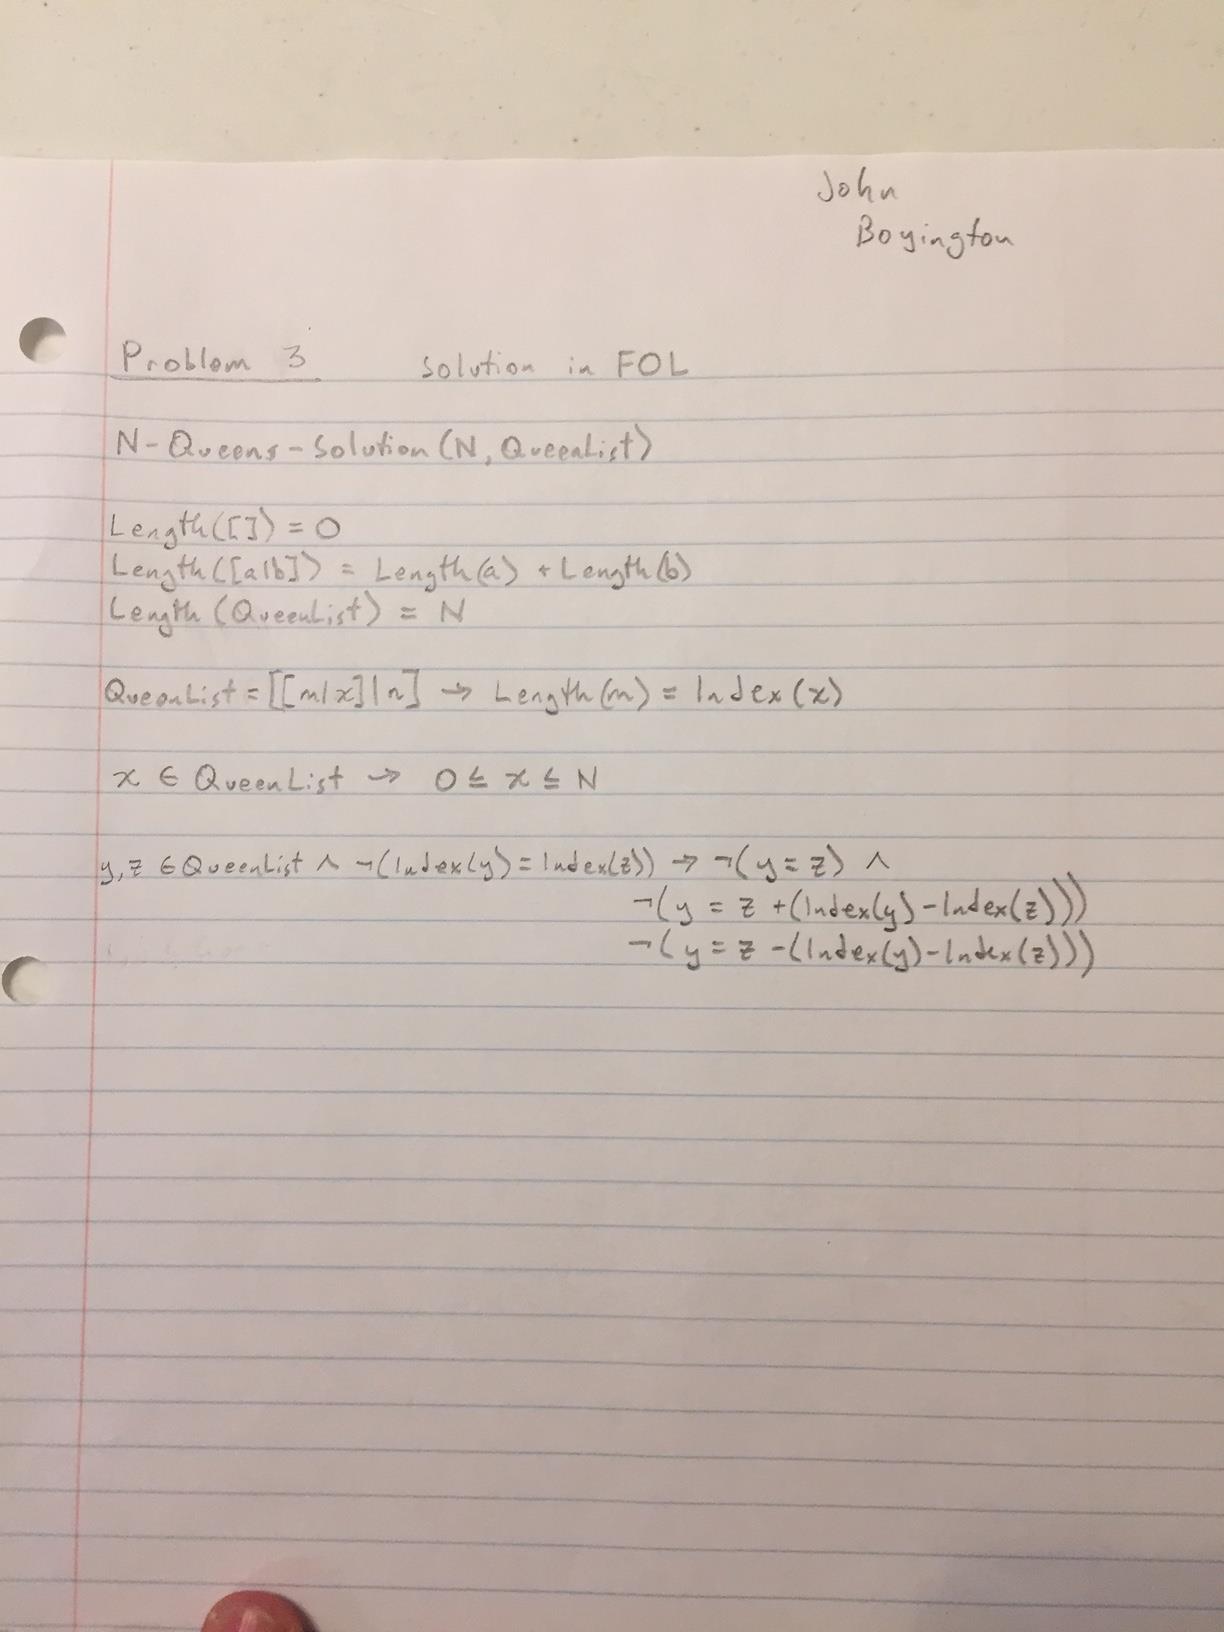 John
Boyington
Problem 3 solution in FOL
N-Queens-Solution(N, QueenList)
Length([]) = 0
Length([a|b]) = Length(a) + Length(b)
Length(QueenList) = N
QueenList = [[m|x]|n] → Length(m) = Index(x)
x ∈ QueenList → 0 ≤ x ≤ N
y, z ∈ QueenList ∧ ¬(Index(y) = Index(z)) → ¬(y = z) ∧
¬(y = z + (Index(y) - Index(z)))
¬(y = z - (Index(y) - Index(z)))